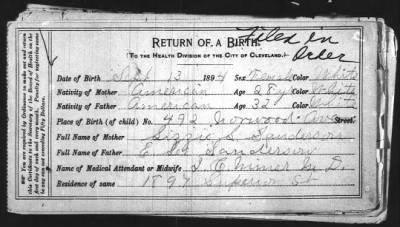 Filed in
Order
RETURN OF A BIRTH.
(TO THE HEALTH DIVISION OF THE CITY OF CLEVELAND.)
Date of Birth Sep 13 1894 Sex Female Color White
Nativity of Mother American Age 28 yr Color White
Nativity of Father American Age 32 " Color White
Place of Birth (of child) No. 492 Norwood Ave Street.
Full Name of Mother Lizzie S. Sanderson
Full Name of Father E. Sanderson
Name of Medical Attendant or Midwife M. D.
Residence of same 1897 Superior St
You are required by Ordinance to make out and return
this Certificate to the Secretary of the Board of Health on the
first day of each and every month. Penalty for neglecting same
not exceeding Fifty Dollars.